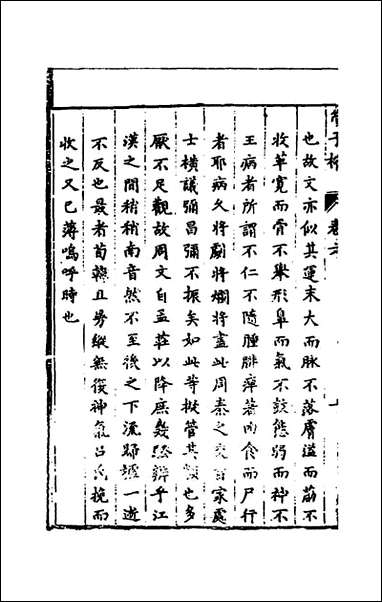 管子榷 卷六
也故文亦似其運末大而脉不落膚道而筋不
收革寛而骨不舉形阜而氣不鼓態弱而神不
王病者所謂不仁不隨腫腓痺著肉食而尸行
者耶病久將劇將爛將盡此周秦之文百家處
士横議彌昌彌不振矣如此等擬管其類也多
厭不足觀故周文自孟莊以降庶幾騷辨乎江
漢之間稍稍南音然不至後之下流歸墟一逝
不反也最者荀韓且勇縱無復神氣吕氏挽而
收之又已薄嗚呼時也